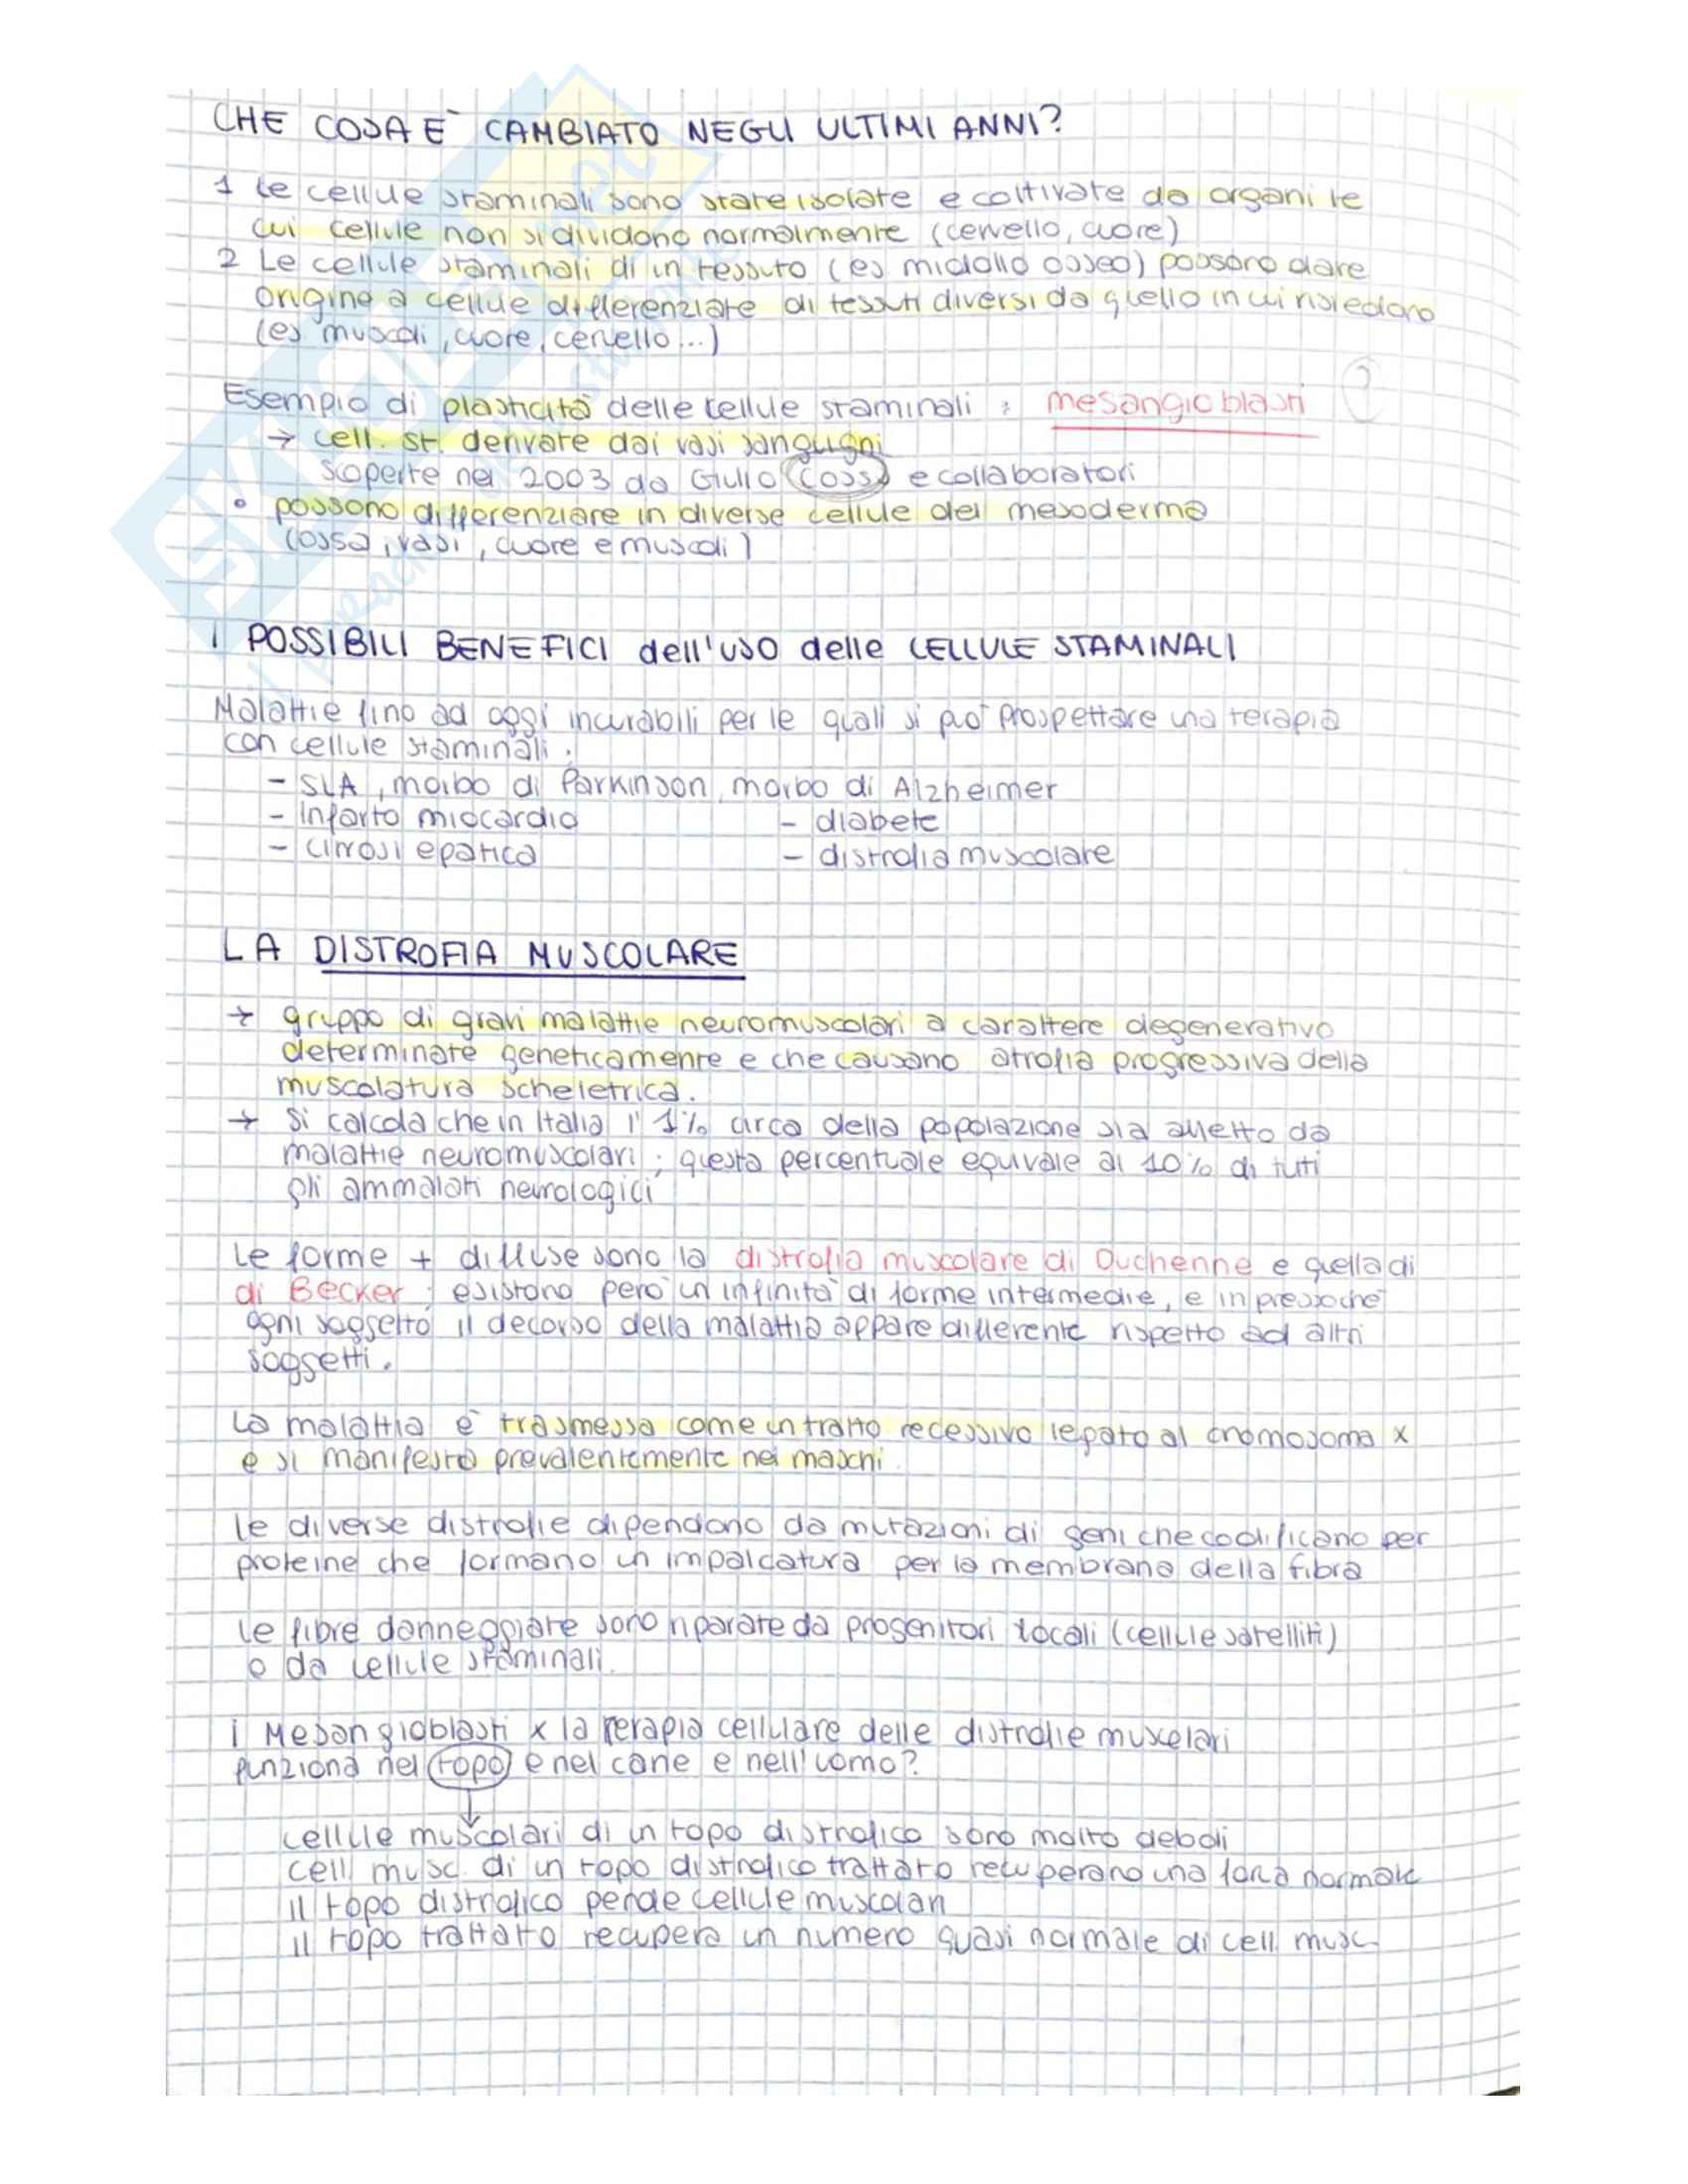 CHE COSA È CAMBIATO NEGLI ULTIMI ANNI?
1 Le cellule staminali sono state isolate e coltivate da organi le
cui cellule non si dividono normalmente (cervello, cuore)
2 Le cellule staminali di un tessuto (es midollo osseo) possono dare
origine a cellule differenziate di tessuti diversi da quello in cui risiedono
(es muscoli, cuore, cervello...)
Esempio di plasticità delle cellule staminali : mesangioblasti ?
→ cell. st. derivate dai vasi sanguigni
scoperte nel 2003 da Giulio Cossu e collaboratori
• possono differenziare in diverse cellule del mesoderma
(ossa, vasi, cuore e muscoli)
I POSSIBILI BENEFICI dell'uso delle CELLULE STAMINALI
Malattie fino ad oggi incurabili per le quali si può prospettare una terapia
con cellule staminali :
- SLA, morbo di Parkinson, morbo di Alzheimer
- infarto miocardio - diabete
- cirrosi epatica - distrofia muscolare
LA DISTROFIA MUSCOLARE
→ gruppo di gravi malattie neuromuscolari a carattere degenerativo
determinate geneticamente e che causano atrofia progressiva della
muscolatura scheletrica.
→ Si calcola che in Italia l'1% circa della popolazione sia affetto da
malattie neuromuscolari ; questa percentuale equivale al 10% di tutti
gli ammalati neurologici
Le forme + diffuse sono la distrofia muscolare di Duchenne e quella di
di Becker ; esistono però un infinità di forme intermedie, e in pressoché
ogni soggetto il decorso della malattia appare differente rispetto ad altri
soggetti.
La malattia è trasmessa come un tratto recessivo legato al cromosoma x
e si manifesta prevalentemente nei maschi.
le diverse distrofie dipendono da mutazioni di geni che codificano per
proteine che formano un impalcatura per la membrana della fibra
le fibre danneggiate sono riparate da progenitori locali (cellule satelliti)
o da cellule staminali.
i Mesangioblasti x la terapia cellulare delle distrofie muscolari
funziona nel topo e nel cane e nell'uomo?
cellule muscolari di un topo distrofico sono molto deboli
cell musc. di un topo distrofico trattato recuperano una forza normale
il topo distrofico perde cellule muscolari
il topo trattato recupera un numero quasi normale di cell musc